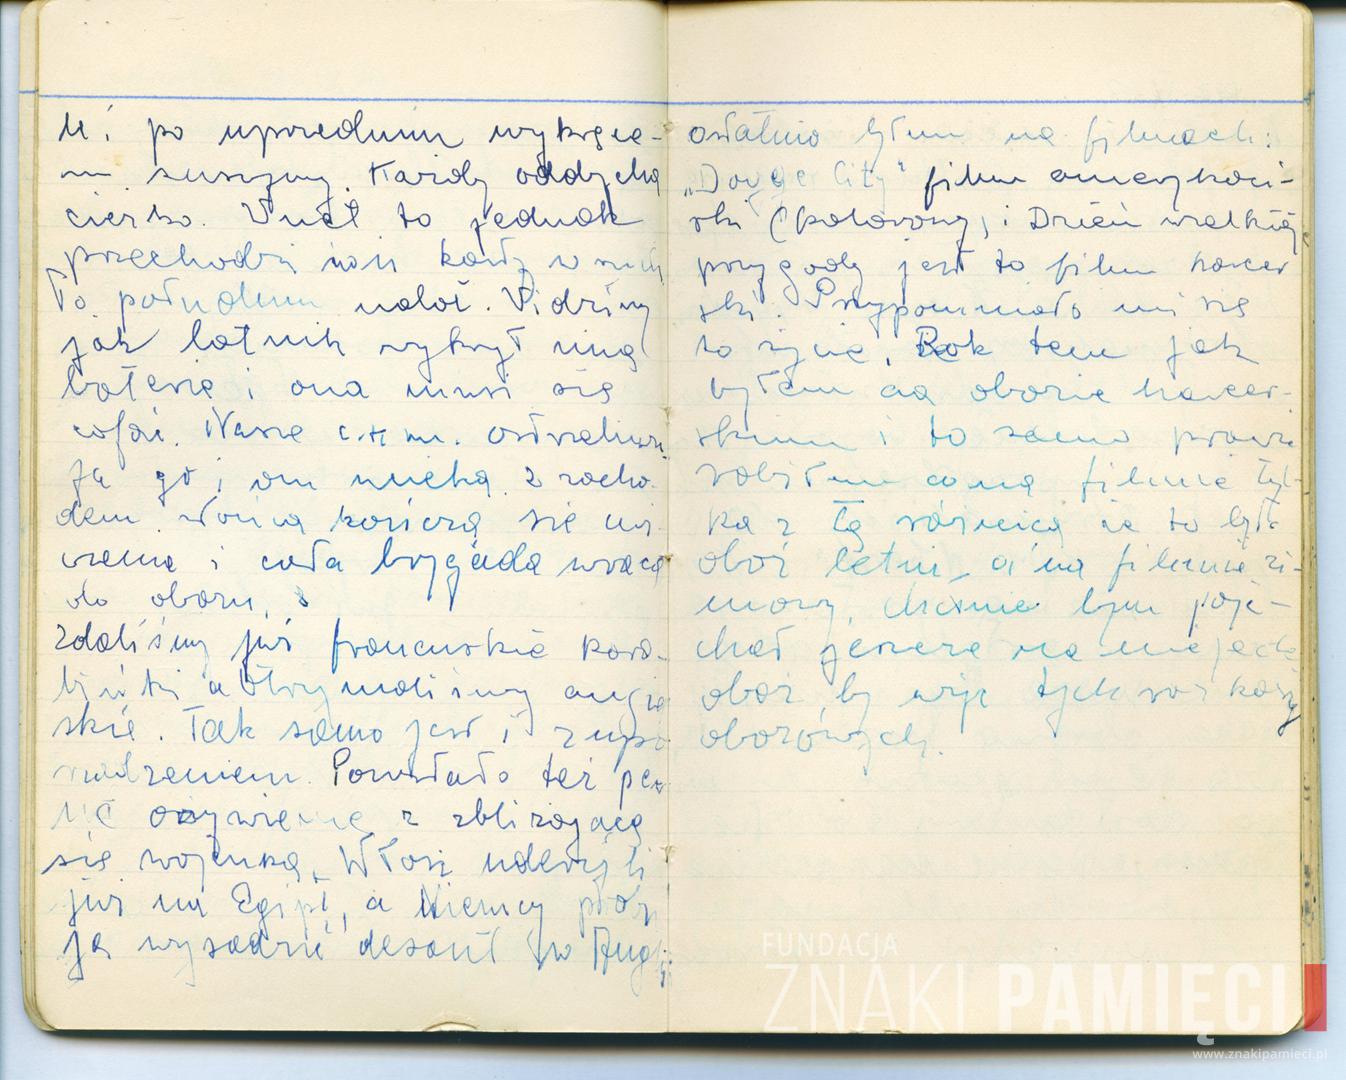 M. po uprzednim wykręce-
niu suszymy. Każdy oddycha
ciężko. Unet to jednak
przechodzi i każdy w
Po południu nalot. Widzimy
jak lotnik wykrył
baterię i ona musi się
cofać. Nasze c.k.m. ostrzeliwu-
ją go i on ucieka. Z zacho-
dem słońca kończą się ćwi-
czenia i cała brygada wraca
do obozu.
Zdaliśmy już francuskie kara-
binki a otrzymaliśmy angiel
skie. Tak samo jest i z upo-
rządzeniem. Powstało też pew
ne ożywienie z zbliżającą
się wojenką. Włosi uderzyli
już na Egipt, a Niemcy próbu
ją wysadzić desant w Anglji.
ostatnio byłem na filmach:
„Dodge City" film amerykań-
ski (kolorowy) i Dzień wielkiej
przygody jest to film harcer
ski. Przypomniało mi się
to życie. Rok temu jak
byłem na obozie harcer-
skim i to samo prawie
robiłem co na filmie tyl-
ko z tą różnicą że to był
obóz letni, a na filmie zi-
mowy. Chętnie bym poje-
chał jeszcze na niejeden
obóz, by użyć tych rozkoszy
obozowych.
FUNDACJA
ZNAKI PAMIĘCI
www.znakipamieci.pl